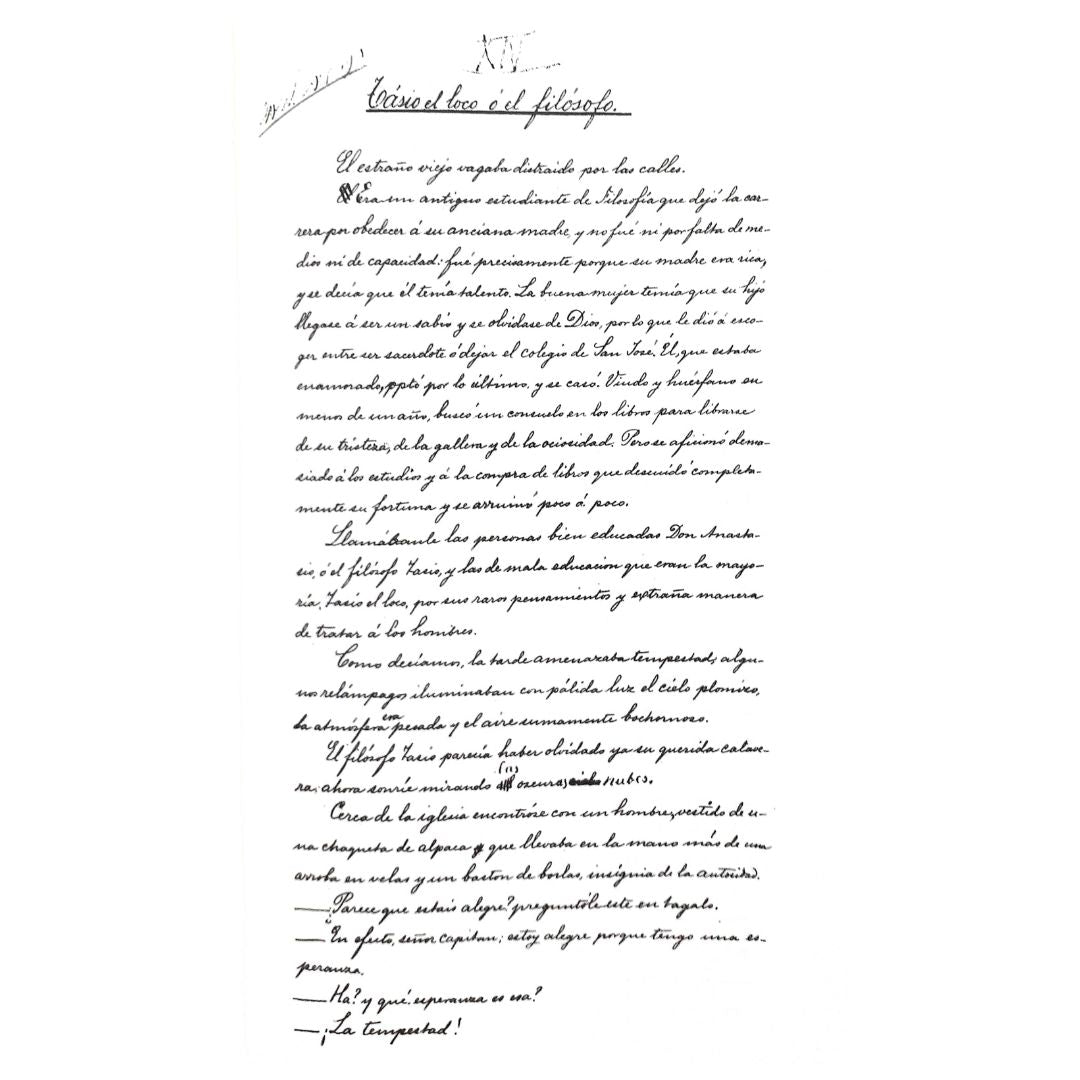 XIV
Tásio el loco ó el filósofo.
El estraño viejo vagaba distraido por las calles.
Era un antiguo estudiante de Filosofía que dejó la car-
rera por obedecer á su anciana madre, y no fué ni por falta de me-
dios ni de capacidad: fué precisamente porque su madre era rica,
y se decía que él tenía talento. La buena mujer temía que su hijo
llegase á ser un sabio y se olvidase de Dios, por lo que le dió á esco-
ger entre ser sacerdote ó dejar el colegio de San José. Él, que estaba
enamorado, optó por lo último, y se casó. Viudo y huérfano en
menos de un año, buscó un consuelo en los libros para librarse
de su tristeza, de la gallera y de la ociosidad. Pero se aficionó dema-
siado á los estudios y á la compra de libros que descuidó completa-
mente su fortuna y se arruinó poco á poco.
Llamábanle las personas bien educadas Don Anasta-
sio, ó el filósofo Tasio, y las de mala educacion que eran la mayo-
ría, Tasio el loco, por sus raros pensamientos y extraña manera
de tratar á los hombres.
Como decíamos, la tarde amenazaba tempestad; algu-
nos relámpagos iluminaban con pálida luz el cielo plomizo,
la atmósfera era pesada y el aire sumamente bochornoso.
El filósofo Tasio parecía haber olvidado ya su querida calave-
ra; ahora sonríe mirando las oscuras nubes.
Cerca de la iglesia encontróse con un hombre, vestido de u-
na chaqueta de alpaca que llevaba en la mano más de una
arroba en velas y un baston de borlas, insignia de la autoridad.
—¿Parece que estais alegre? preguntóle este en tagalo.
—En efecto, señor capitan; estoy alegre porque tengo una es-
peranza.
—Ha? y qué esperanza es esa?
—¡La tempestad!